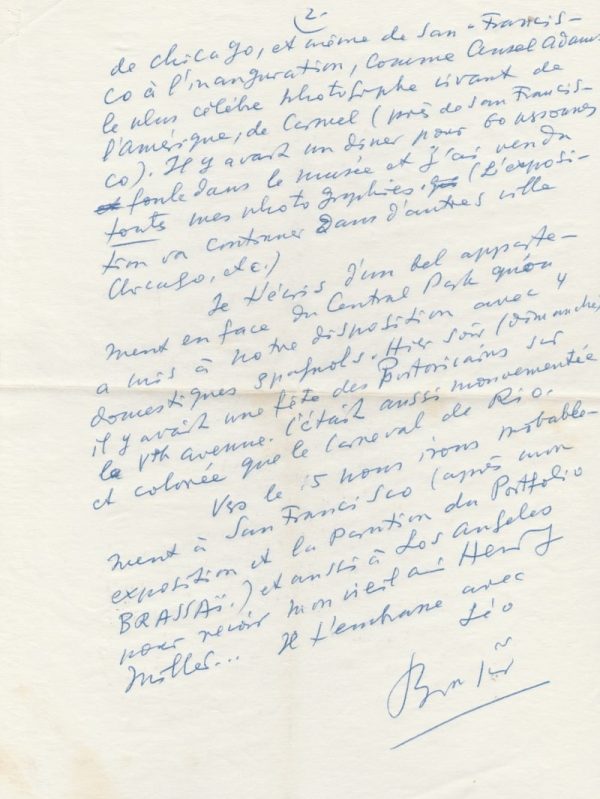 2.
de Chicago, et même de San-Francis-
co à l'inauguration, comme Ansel Adams
le plus célèbre photographe vivant de
l'Amérique, de Carmel (près de San Francis-
co). Il y avait un dîner pour 60 personnes
foule dans le musée et j'ai vendu
touts mes photographies. (L'exposi-
tion va continuer dans d'autres ville
Chicago, etc.)
Je t'écris d'un bel apparte-
ment en face du Central Park qu'on
a mis à notre disposition avec 4
domestiques spagnols. Hier soir (dimanche)
il y avait une fête des Portoricains sur
la Vth avenue. C'était aussi mouvementée
et colorée que le Carneval de Rio.
Vers le 15 nous irons probable-
ment à San Francisco (après mon
exposition et la Parution du Portfolio
BRASSAÏ.) et aussi à Los Angeles
pour revoir mon vieil ami Henry
Miller... Je t'embrasse avec
Léo